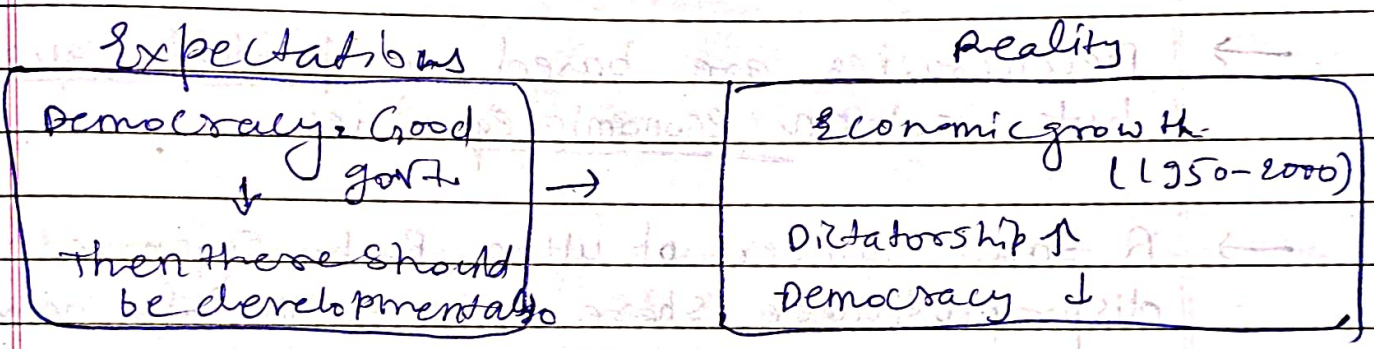 Expectations
Democracy = Good
govt.
↓
Then there should
be development also
→
Reality
Economic growth
(1950-2000)
Dictatorship ↑
Democracy ↓